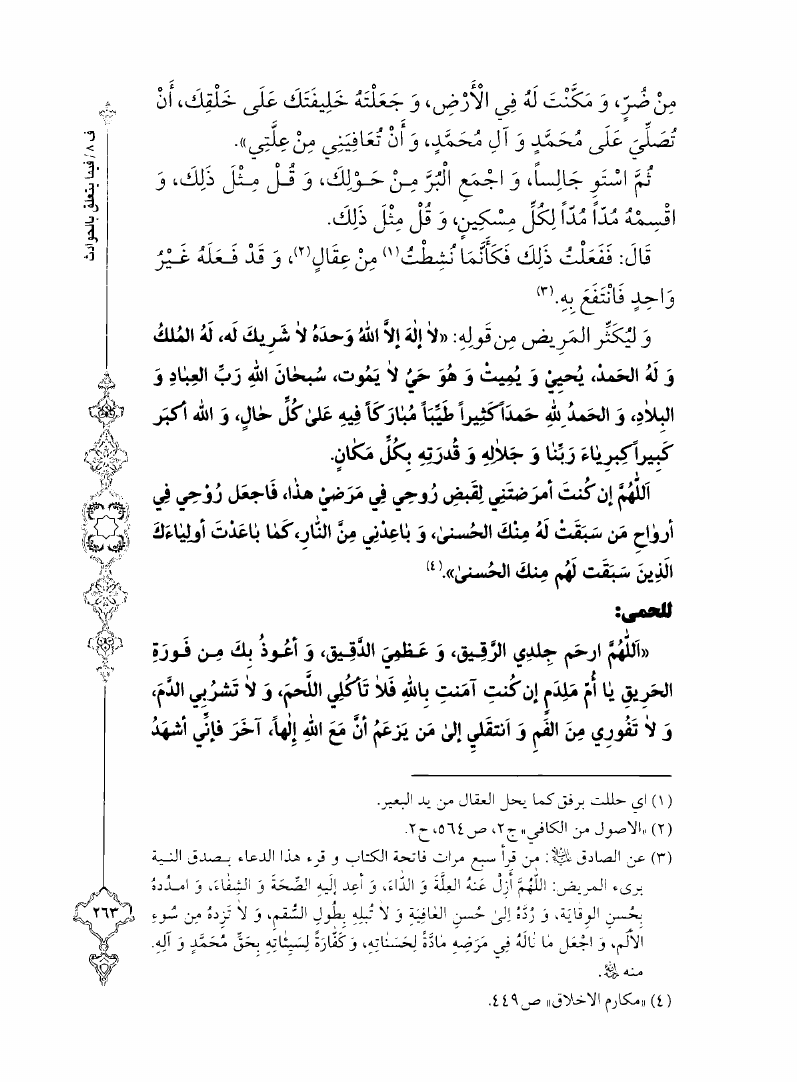 مِنْ ضُرٍّ، وَ مَكَّنْتَ لَهُ فِي الْأَرْضِ، وَ جَعَلْتَهُ خَلِيفَتَكَ عَلَى خَلْقِكَ، أَنْ
تُصَلِّيَ عَلَى مُحَمَّدٍ وَ آلِ مُحَمَّدٍ، وَ أَنْ تُعَافِيَنِي مِنْ عِلَّتِي».
ثُمَّ اسْتَوِ جَالِساً، وَ اجْمَعِ الْبُرَّ مِـنْ حَـوْلِكَ، وَ قُـلْ مِـثْلَ ذَلِكَ، وَ
اقْسِمْهُ مُدّاً مُدّاً لِكُلِّ مِسْكِينٍ، وَ قُلْ مِثْلَ ذَلِكَ.
قَالَ: فَفَعَلْتُ ذَلِكَ فَكَأَنَّمَا نُشِطْتُ(١) مِنْ عِقَالٍ(٢)، وَ قَدْ فَـعَلَهُ غَـيْرُ
وَاحِدٍ فَانْتَفَعَ بِهِ.(٣)
وَ لْيُكَثِّرِ المَرِيض مِن قَولِهِ: «لاٰ إِلٰهَ إلاَّ اللهُ وَحدَهُ لاٰ شَرِيكَ لَه، لَهُ المُلكُ
وَ لَهُ الحَمدُ، يُحيِيْ وَ يُمِيتْ وَ هُوَ حَيٌ لاٰ يَمُوت، سُبحٰانَ اللهِ رَبِّ العِبٰادِ وَ
البِلاٰدِ، وَ الحَمدُ لِلّٰهِ حَمداً كَثِيراً طَيِّبَاً مُبٰارَكَاً فِيهِ عَلىٰ كُلِّ حٰالٍ، وَ الله أكبَر
كَبِيراً كِبرِيٰاءَ رَبِّنٰا وَ جَلاٰلِهِ وَ قُدرَتِهِ بِكُلِّ مَكٰانٍ.
اَللّٰهُمَّ إن كُنتَ أمرَضتَنِي لِقَبضِ رُوحِي فِي مَرَضِيْ هٰذٰا، فَاجعَل رُوْحِي فِي
أرواٰحِ مَن سَبَقَتْ لَهُ مِنْكَ الحُسنىٰ، وَ بٰاعِدْنِي مِنَّ النّٰارِ، كَمٰا بٰاعَدْتَ أولِيٰاءَكَ
الَّذِينَ سَبَقَت لَهُم مِنكَ الحُسنىٰ».(٤)
للحمى:
«اَللّٰهُمَّ ارحَم جِلدِي الرَّقِـيق، وَ عَـظمِيَ الدَّقِـيق، وَ أعُـوذُ بِكَ مِـن فَـورَةِ
الحَرِيقِ يٰا أُمّ مَلِدَمٍ إن كُنتِ آمَنتِ بِاللهِ فَلاٰ تَأكُلِي اللَّحمَ، وَ لاٰ تَشرُبِي الدَّمَ،
وَ لاٰ تَفُورِي مِنَ الفَمِ وَ اَنتقَلِي إلىٰ مَن يَزعَمُ أنَّ مَعَ اللهِ إلٰهاً، آخَرَ فَإنِّي أشهَدُ
(١) اي حللت برفق كما يحل العقال من يد البعير.
(٢) «الاصول من الكافي» ج٢، ص٥٦٤، ح٢.
(٣) عن الصادق ﷺ: من قرأ سبع مرات فاتحة الكتاب و قرء هذا الدعاء بـصدق النـية
برىء المريض: اللّٰهُمَّ أَزِل عَنهُ العِلَّةَ وَ الدّٰاءَ، وَ أعِد إِلَيهِ الصِّحَةَ وَ الشِفٰاءَ، وَ امـدُدهُ
بِحُسنِ الوِقٰايَة، وَ رُدَّهُ إلىٰ حُسنِ العٰافِيَةِ وَ لاٰ تُبلِهِ بِطُولِ السُّقمِ، وَ لاٰ تَزِدهُ مِن سُوءِ
الأَلَمِ، وَ اجْعَل مٰا نٰالَهُ فِي مَرَضِهِ مٰادَّةً لِحَسَنٰاتِهِ، وَ كَفّٰارَةً لِسَيِئٰاتِهِ بِحَقِّ مُحَمَّدٍ وَ آلِهِ.
منه ﷺ.
(٤) «مكارم الاخلاق» ص٤٤٩.
ف ٨ / فيما يتعلق بالحوادث
٢٦٣